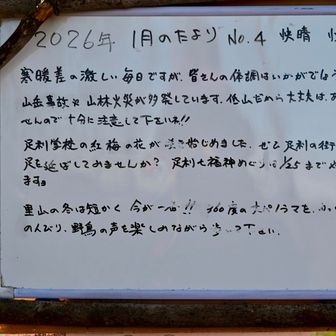 2026年 1月のたより No.4 快晴
寒暖差の激しい毎日ですが、皆さんの体調はいかがでしょう
山岳事故や山林火災が多発しています。低山だから大丈夫は
せんので十分に注意して下さいね!!
足利学校の紅梅の花が咲き始めました。ぜひ足利の街
足を延ばしてみませんか? 足利七福神めぐりは 1/25まで
ます。
里山の冬は短かく 今が一番!! 360度の大パノラマを、
のんびり、野鳥の声を楽しめながら歩いて下さい。